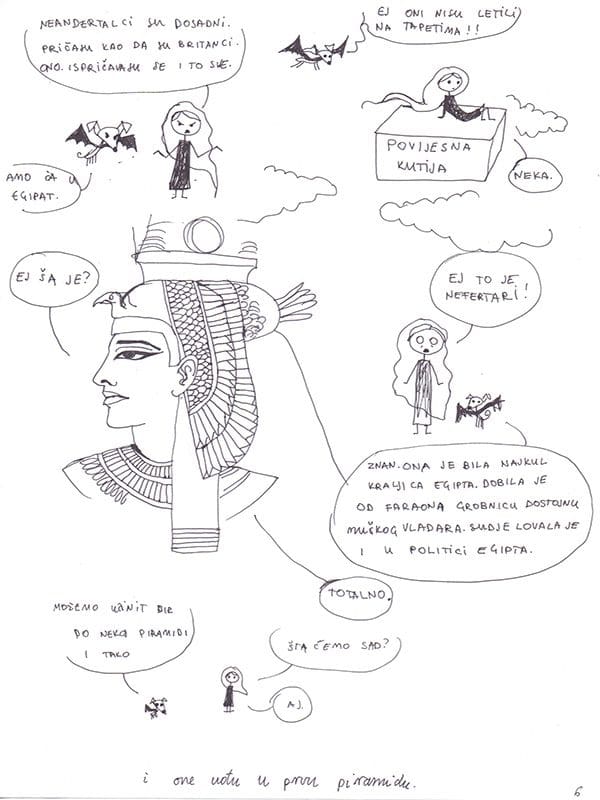 NEANDERTALCI SU DOSADNI.
PRIČAJU KAO DA SU BRITANCI.
ONO. ISPRIČAVAJU SE I TO SVE.
EJ ONI NISU LETILI
NA TAPETIMA!!
AMO ĆA U
EGIPAT.
POVIJESNA
KUTIJA
NEKA.
EJ ŠA JE?
EJ TO JE
NEFERTARI!
ZNAN. ONA JE BILA NAJKUL
KRALJICA EGIPTA. DOBILA JE
OD FARAONA GROBNICU DOSTOJNU
MUŠKOG VLADARA. SUDJELOVALA JE
I U POLITICI EGIPTA.
TOTALNO.
MOŠEMO UŽINIT ĐIR
DO NEKO PIRAMIDI
I TAKO
ŠTA ĆEMO SAD?
AJ.
i one uđu u prvu piramidu.
6